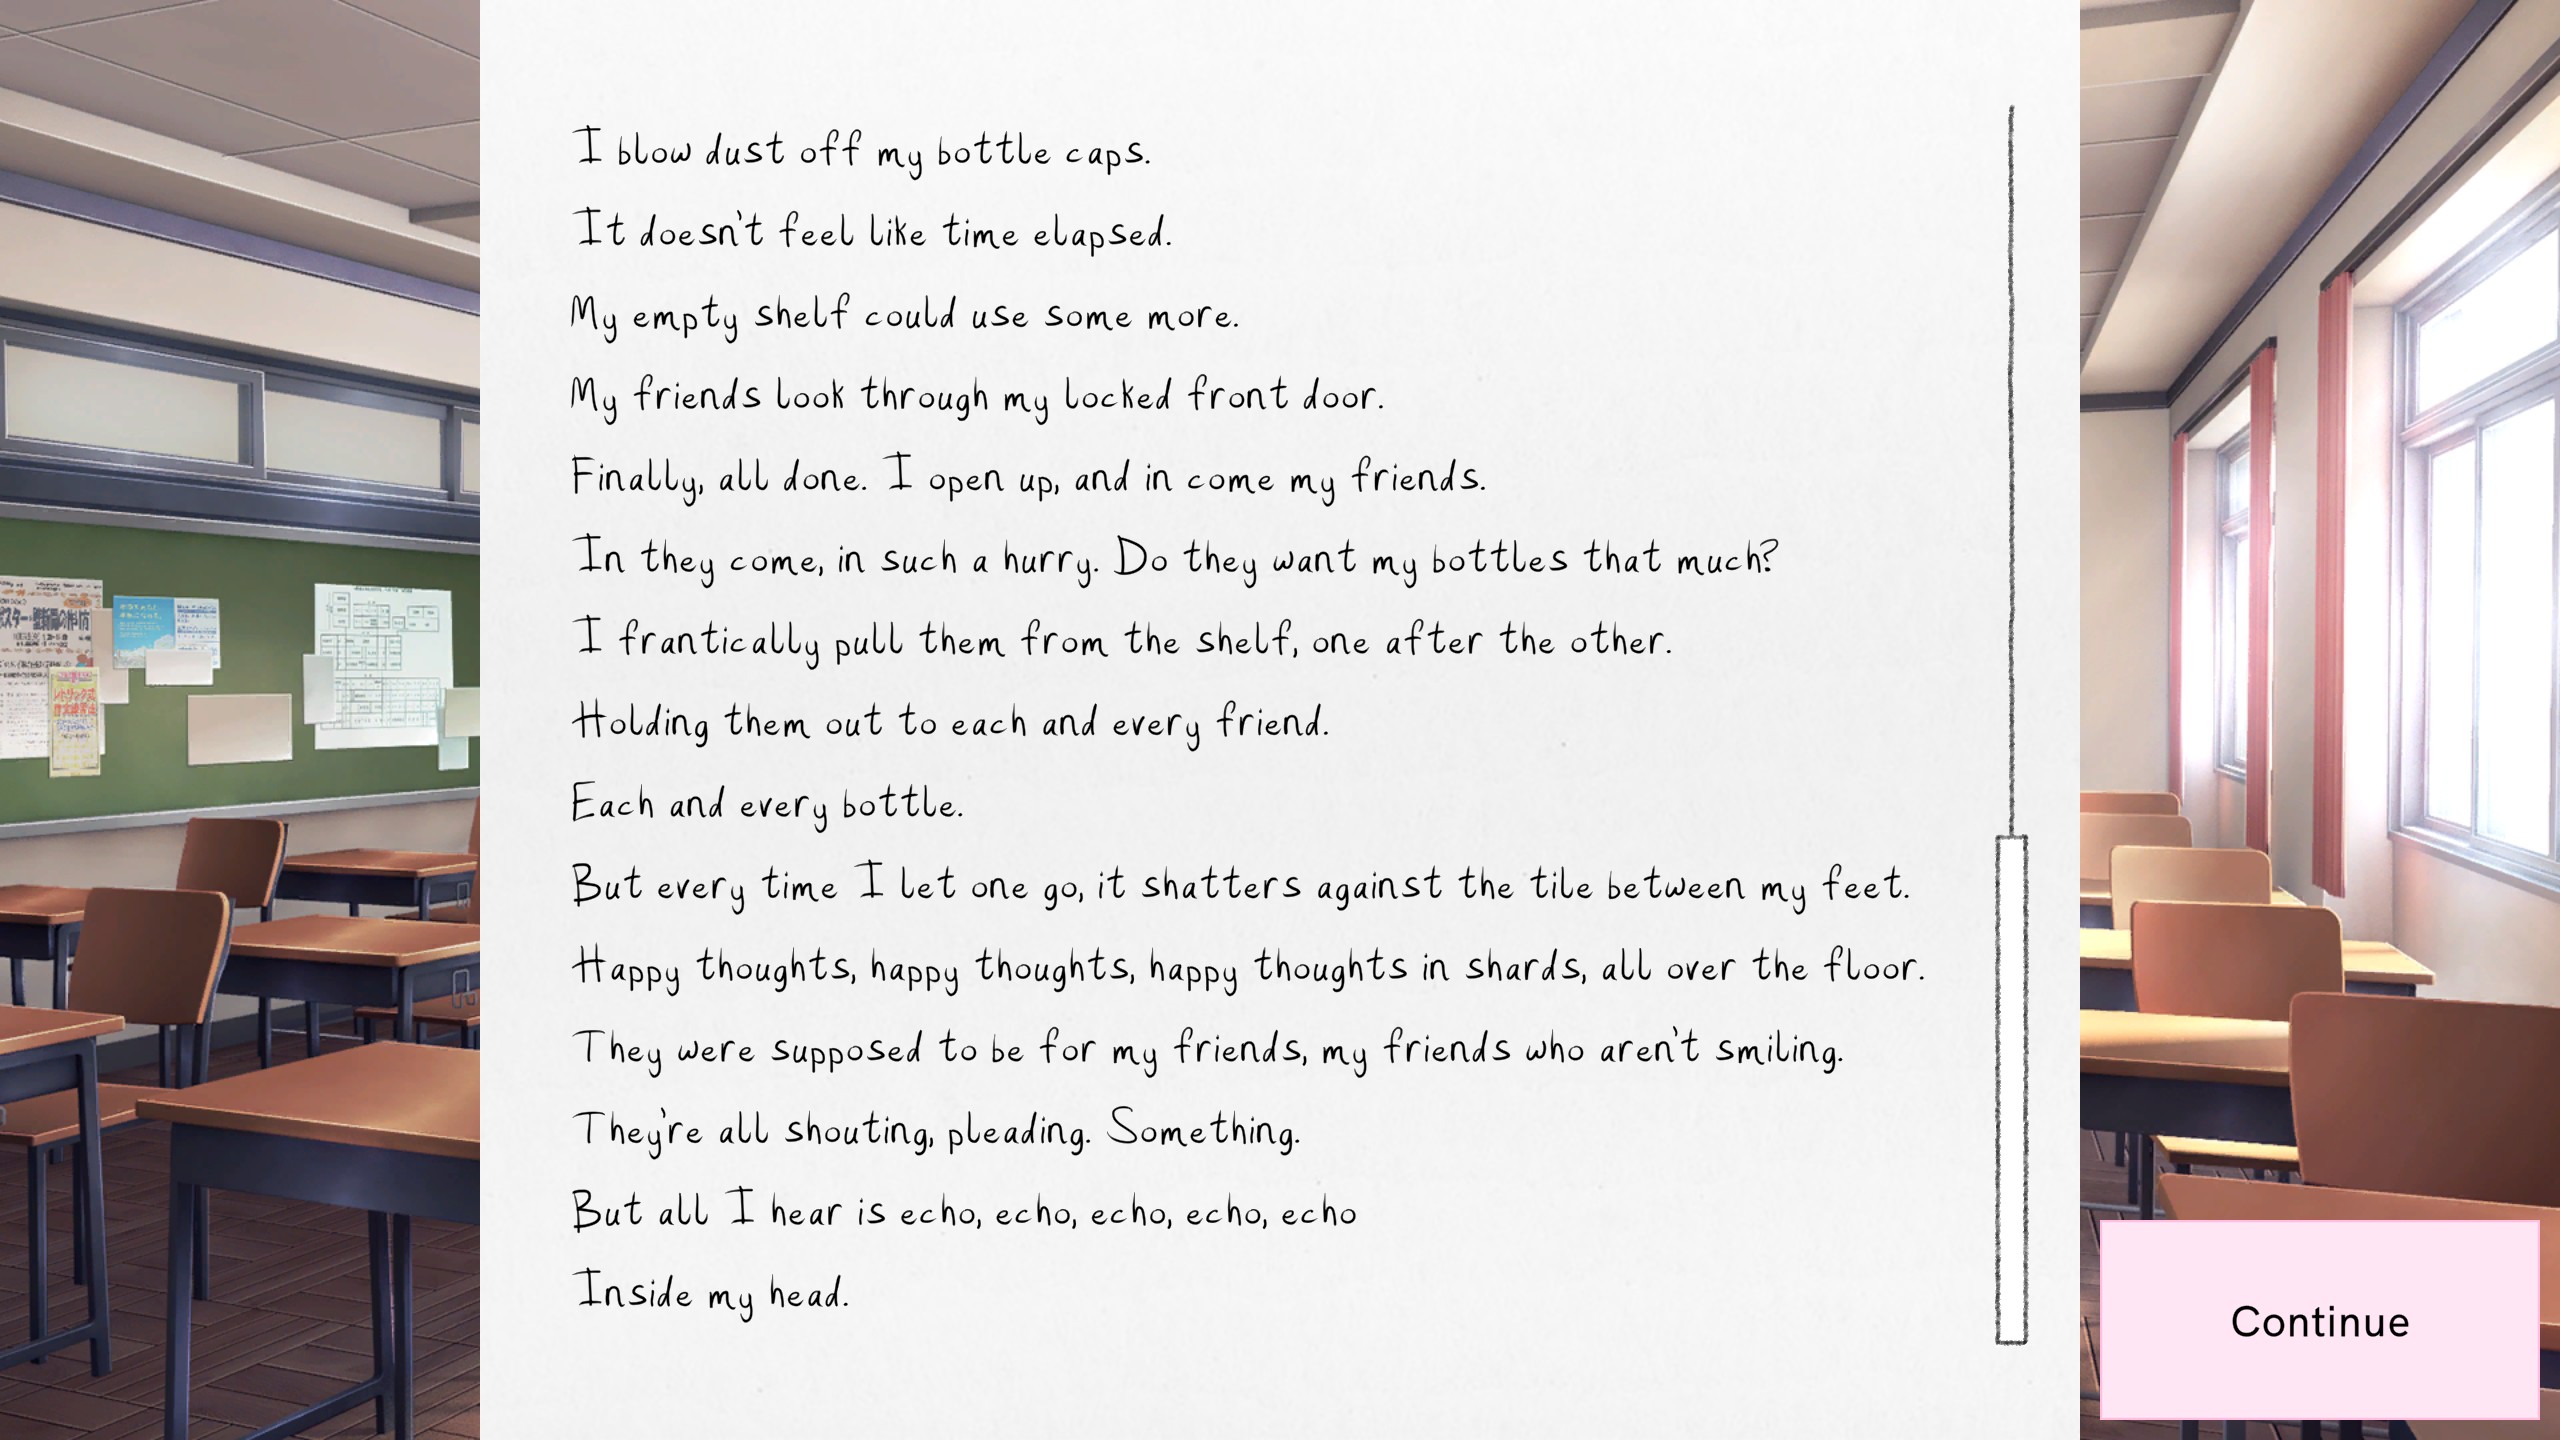 I blow dust off my bottle caps.
It doesn't feel like time elapsed.
My empty shelf could use some more.
My friends look through my locked front door.
Finally, all done. I open up, and in come my friends.
In they come, in such a hurry. Do they want my bottles that much?
I frantically pull them from the shelf, one after the other.
Holding them out to each and every friend.
Each and every bottle.
But every time I let one go, it shatters against the tile between my feet.
Happy thoughts, happy thoughts, happy thoughts in shards, all over the floor.
They were supposed to be for my friends, my friends who aren't smiling.
They're all shouting, pleading. Something.
But all I hear is echo, echo, echo, echo, echo
Inside my head.
Continue